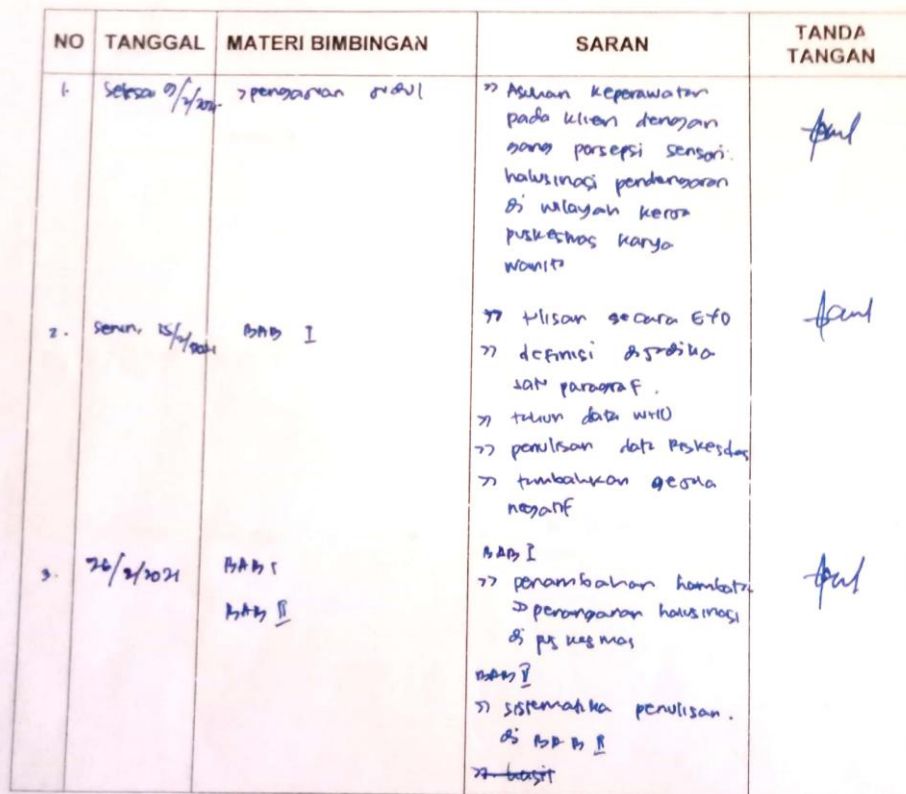 NO TANGGAL MATERI BIMBINGAN SARAN TANDA TANGAN
1. Selasa 9/2/2021 >pengajuan judul
>> Asuhan keperawatan
pada klien dengan
gang persepsi sensori:
halusinasi pendengaran
di wilayah kerja
puskesmas karya
wanita
2. Senin, 15/2/2021 BAB I
>> tlisan secara EYD
>> definisi dijadika
satu paragraf.
>> tahun data WHO
>> penulisan data Riskesdas
>> tumbahkan gejala
negatif
3. 26/2/2021 BAB I
BAB II
BAB I
>> penambahan hambatan
penanganan halusinasi
di puskesmas
BAB II
>> sistematika penulisan.
di BAB II
>> hasil